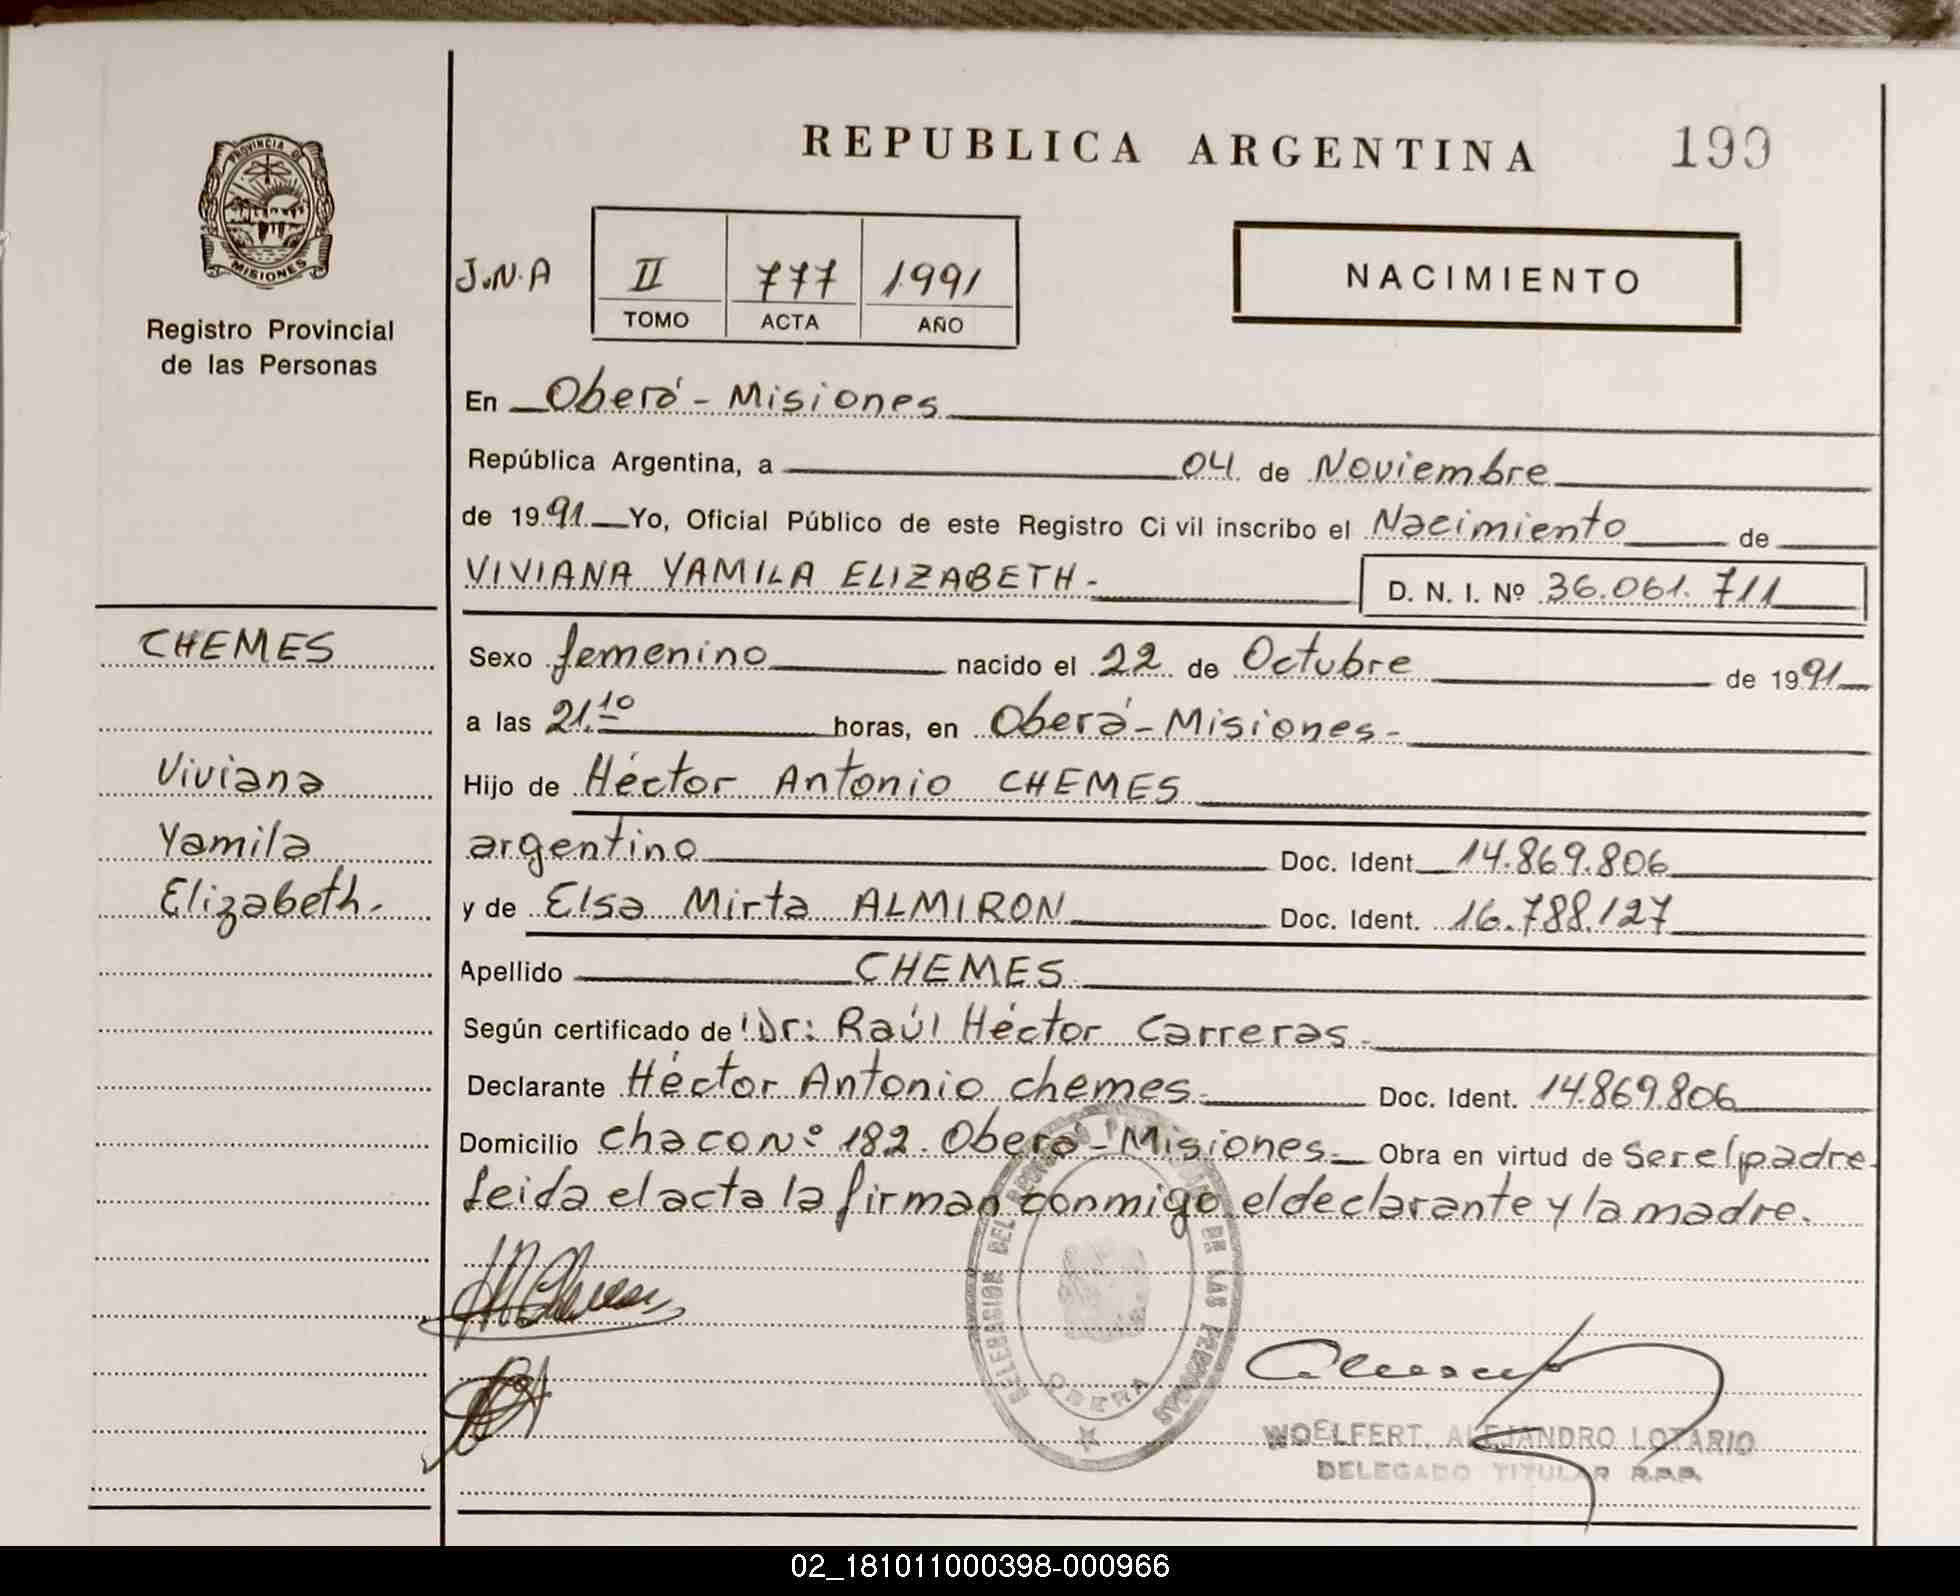 REPUBLICA ARGENTINA
199
PROVINCIA DE
MISIONES
Registro Provincial
de las Personas
J.N.A
II 777 1991
TOMO ACTA AÑO
NACIMIENTO
En Oberá - Misiones
República Argentina, a 04 de Noviembre
de 1991 Yo, Oficial Público de este Registro Civil inscribo el Nacimiento de
VIVIANA YAMILA ELIZABETH.- D. N. I. Nº 36.061.711
CHEMES
Viviana
Yamila
Elizabeth.
Sexo femenino nacido el 22 de Octubre de 1991
a las 21.10 horas, en Oberá - Misiones.-
Hijo de Héctor Antonio CHEMES
argentino Doc. Ident. 14.869.806
y de Elsa Mirta ALMIRON Doc. Ident. 16.788.127
Apellido CHEMES
Según certificado de Dr: Raúl Héctor Carreras.
Declarante Héctor Antonio Chemes. Doc. Ident. 14.869.806
Domicilio Chaco Nº 182. Oberá - Misiones. Obra en virtud de Ser el padre.
Leida el acta la firman conmigo el declarante y la madre.
DELEGACION DEL REGISTRO DE LAS PERSONAS
OBERA
WOELFERT, ALEJANDRO LOTARIO
DELEGADO TITULAR R.P.P.
02_181011000398-000966